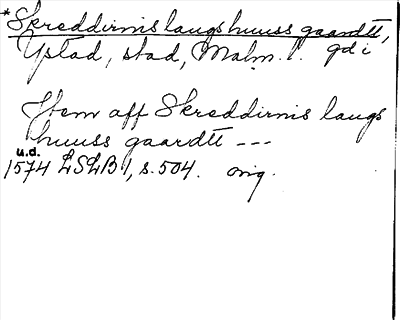 *Skreddirnis laugs huuss gaardtt,
Ystad, stad, Malm. l. gd i
Item aff Skreddirnis laugs
huuss gaardtt ---
u.d.
1574 LSLB 1, s. 504. orig.